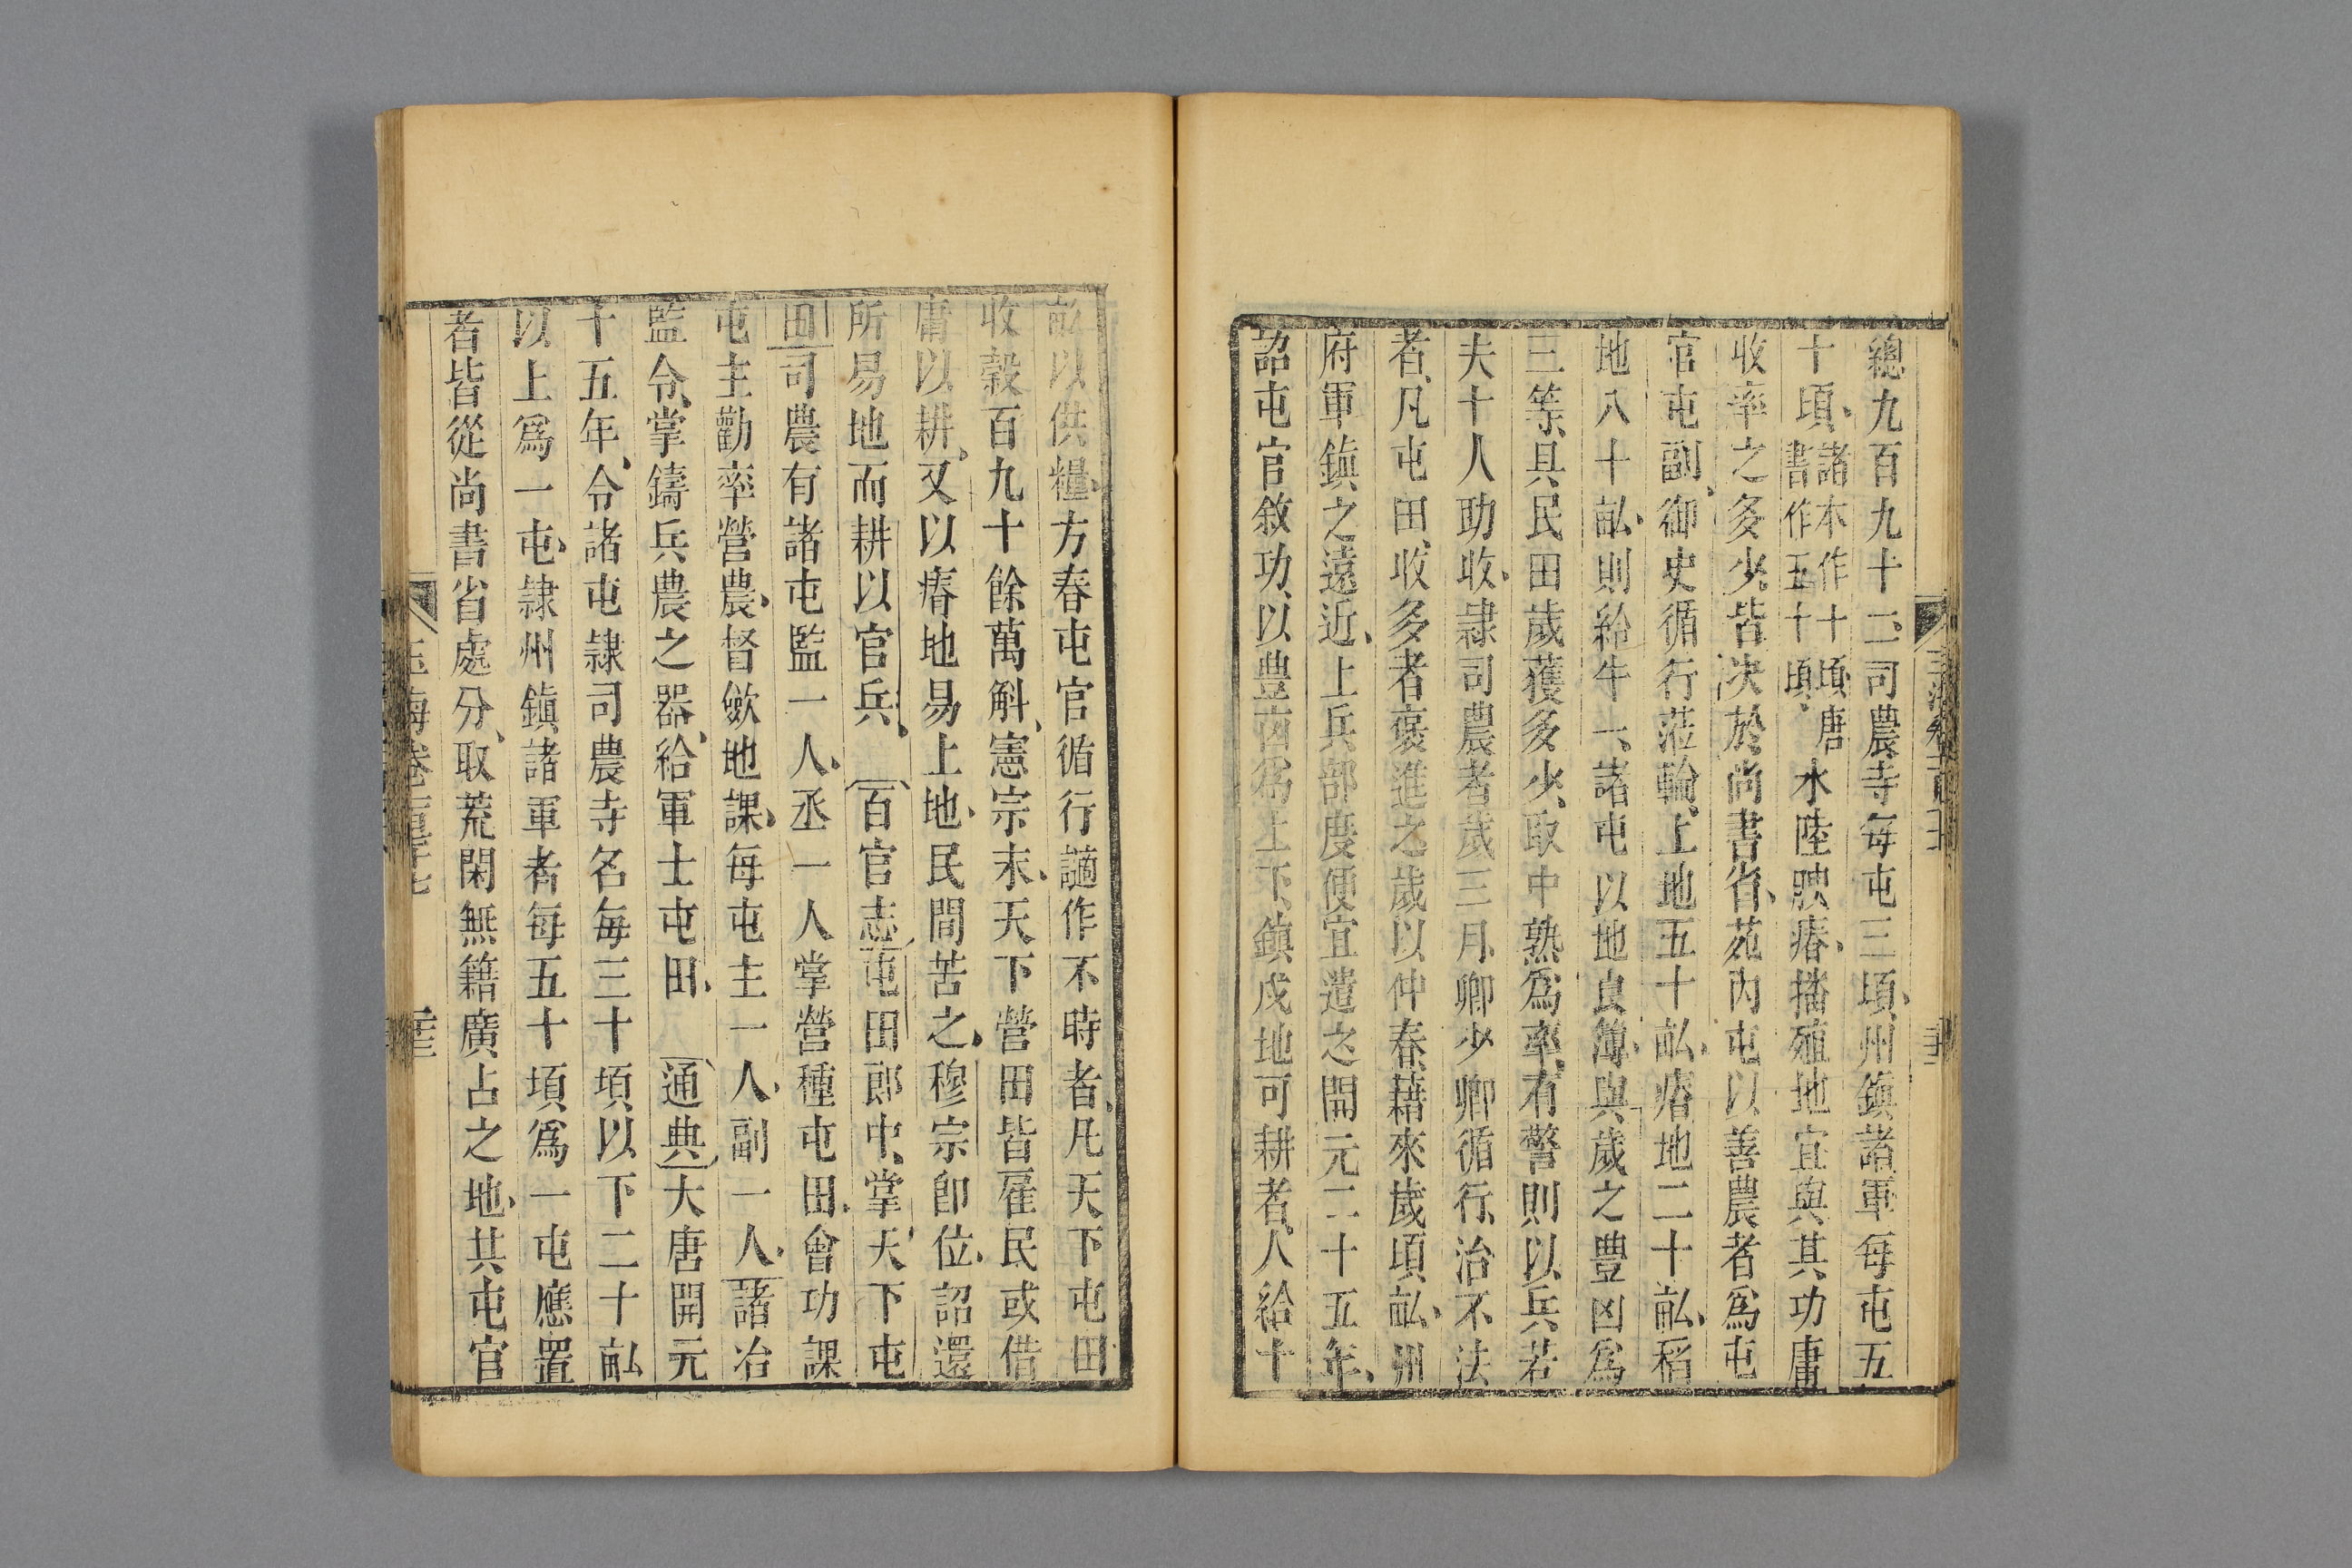 總九百九十二司農寺每屯三頃州鎮諸軍每屯五
十頃諸本作十頃唐書作五十頃水陸腴瘠播殖地宜與其功庸
收率之多少皆決於尚書省苑內屯以善農者爲屯
官屯副御史循行蒞輸上地五十畝瘠地二十畝稻
地八十畝則給牛一諸屯以地良薄與歲之豊凶爲
三等具民田歲獲多少取中熟爲率有警則以兵若
夫十人功收隸司農者歲三月卿少卿循行治不法
者凡屯田收多者褒進之歲以仲春藉來歲頃畝州
府軍鎮之遠近上兵部度便宜遣之開元二十五年
詔屯官敘功以豊凶爲上下鎮戍地可耕者人給十
畝以供糧方春屯官循行讁作不時者凡天下屯田
收穀百九十餘萬斛憲宗末天下營田皆雇民或借
庸以耕又以瘠地易上地民間苦之穆宗卽位詔還
所易地而耕以官兵 百官志屯田郎中掌天下屯
田司農有諸屯監一人丞一人掌營種屯田會功課
屯主勸率營農督斂地課每屯主一人副一人諸冶
監令掌鑄兵農之器給軍士屯田 通典大唐開元
十五年令諸屯隸司農寺名每三十頃以下二十畝
以上爲一屯隸州鎮諸軍者每五十頃爲一屯應置
者皆從尚書省處分取荒閑無籍廣占之地共屯官